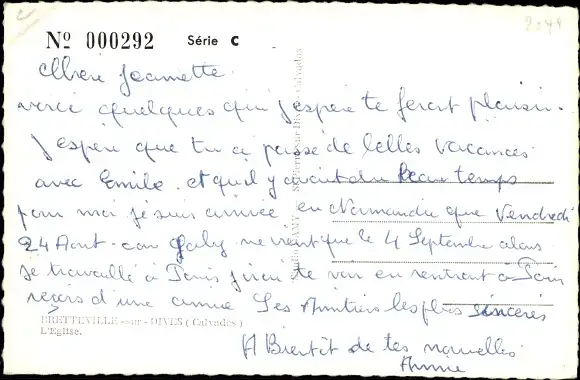 Nº 000292 Série C
2044
Chère Jeannette
voici quelques qui j'espère te feront plaisir.
J'espère que tu a passé de belles vacances
avec Emile. et qu'il y avait du beau temps
pour moi je suis arrivée en Normandie que Vendredi
24 Aout. car Gaby ne vient que le 4 Septembre alors
je travaille à Paris j'irai te voir en rentrant à Paris
reçois d'une amie Les Amitiers les plus sincères
BRETTEVILLE-sur-DIVES (Calvados)
L'Eglise.
A Bientôt de tes nouvelles
Annie